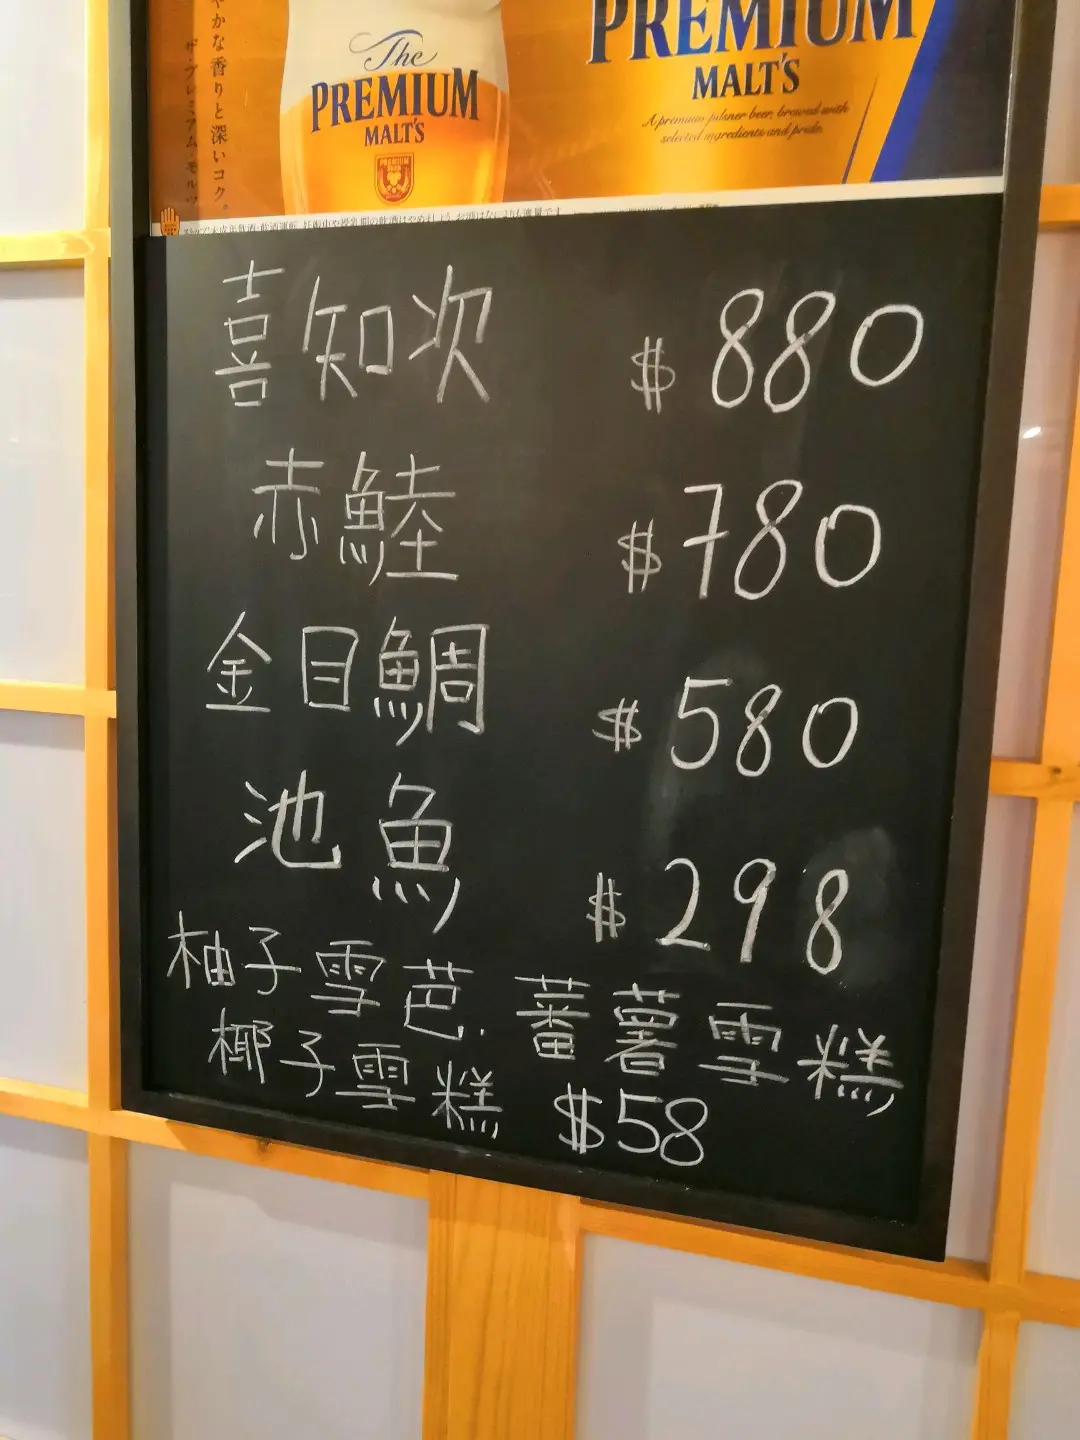 やかな香りと深いコク。
ザ・プレミアム・モルツ
The
PREMIUM
MALT'S
PREMIUM
MALT'S
A premium pilsner beer, brewed with
selected ingredients and pride.
喜知次 $880
赤鯥 $780
金目鯛 $580
池魚 $298
柚子雪芭. 蕃薯雪糕
椰子雪糕 $58